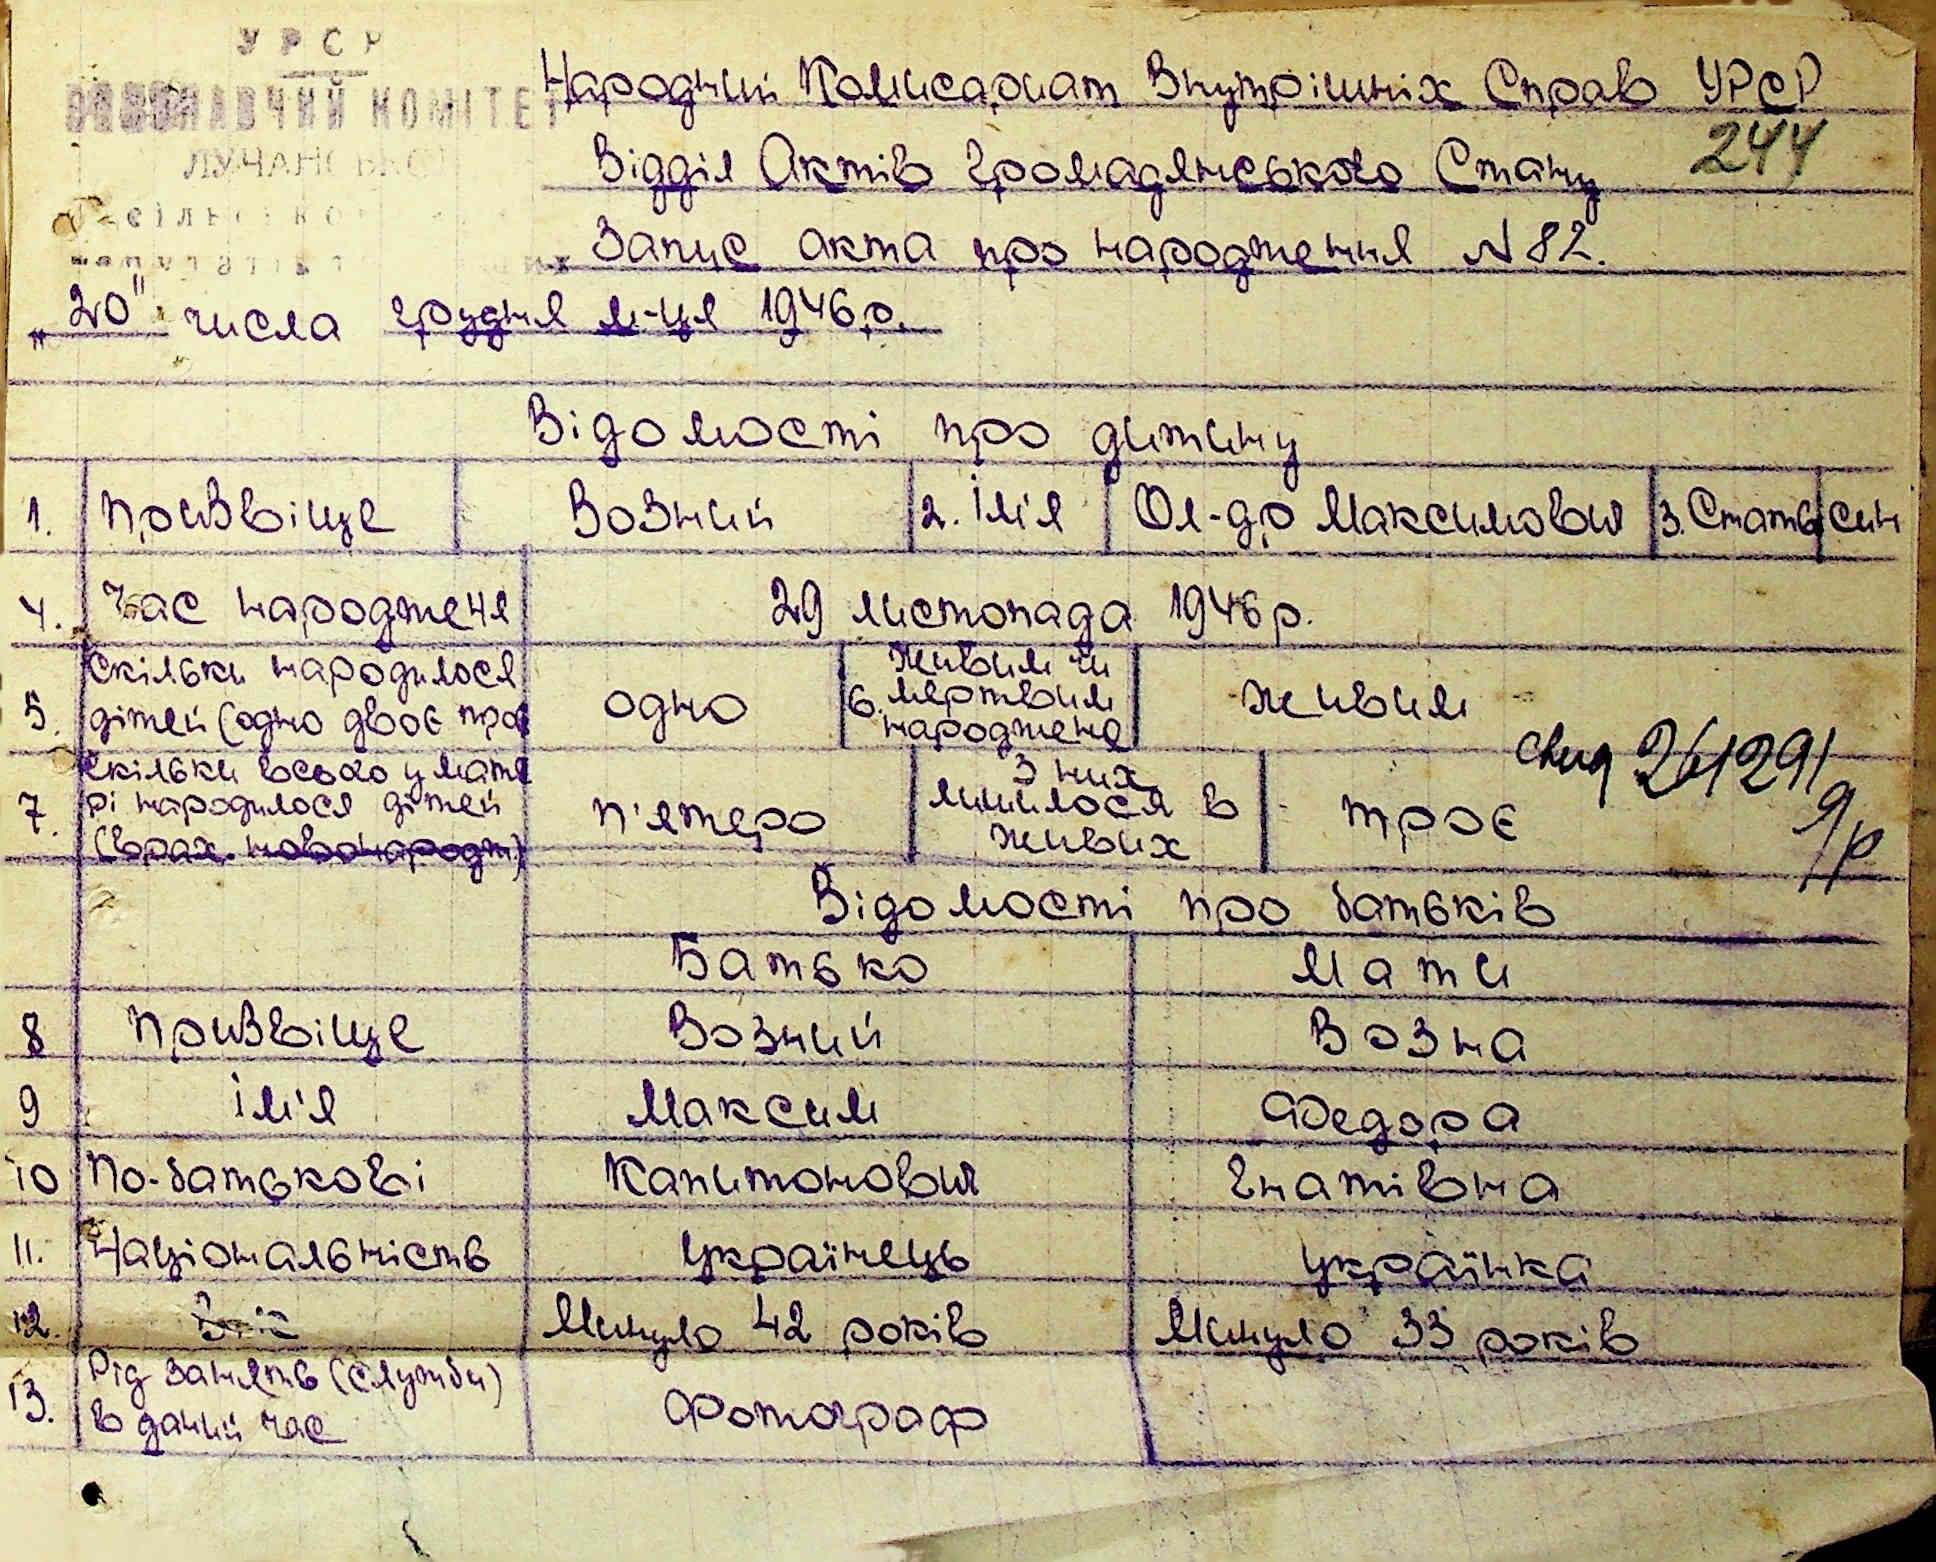 УРСР
ВИКОНАВЧИЙ КОМІТЕТ
ЛУЧАНСЬКОЇ
Народний Комисариат Внутрішніх Справ УРСР
244
Відділ Актів Громадянського Стану
Запис акта про народження N 82.
„20" числа грудня м-ця 1946 р.
Відомості про дитину
1. Призвіще Возний 2. Ім'я Ол-др Максимович 3. Стать син
4. Час народженя 29 листопада 1946 р.
5. Скільки народилося дітей (одно двоє троє одно 6. Живим чи мертвим народжено живим
свид 261291
7. Скільки всього у матері народилося дітей (врах. новонародж) п'ятеро З них лишилося в живих троє
Відомості про батьків
Батько Мати
8 Призвіще Возний Возна
9 Ім'я Максим Федора
10 По-батькові Капитонович Гнатівна
11. Національність Українець українка
12. Вік Минуло 42 років Минуло 33 років
13. Рід занять (служби) в даний час Фотограф